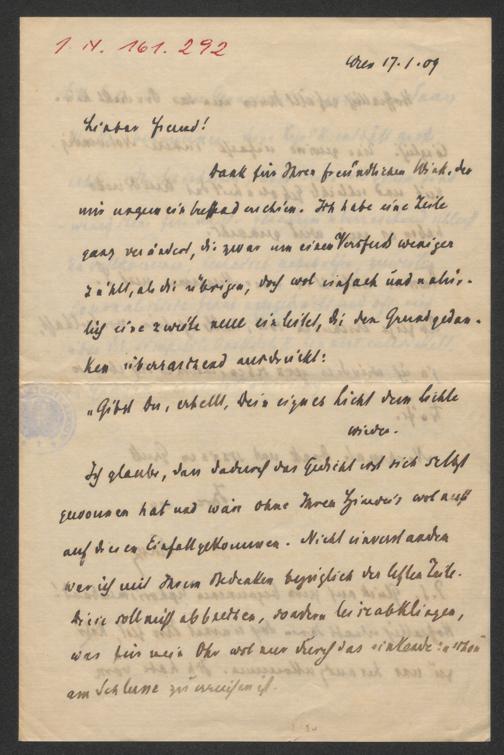 I. N. 161.292
Wien 17.1.09
Lieber Freund!
Dank für Ihren freundlichen Wink, der
mir ungemein erschien. Ich habe eine Zeile
ganz verändert, die zwar um einen Versfuß weniger
zählt, als die übrigen, doch wol einfach und natür-
lich eine zweite einleitet, die den Grundgedan-
ken überraschend ausdrückt:
"Gibst Du, erhellt, Dein eignes Licht dem Lichte
wieder.
Ich glaube, dass dadurch das Gedicht erst sich selbst
gewonnen hat und wäre ohne Ihren Hinweis wol nicht
auf diesen Einfall gekommen. Nicht einverstanden
war ich mit Ihrem Bedenken bezüglich der letzten Zeile.
Diese soll nicht abbrechen, sondern leise abklingen,
was für mein Ohr wol nur durch das
am Schlusse zu erreichen ist.